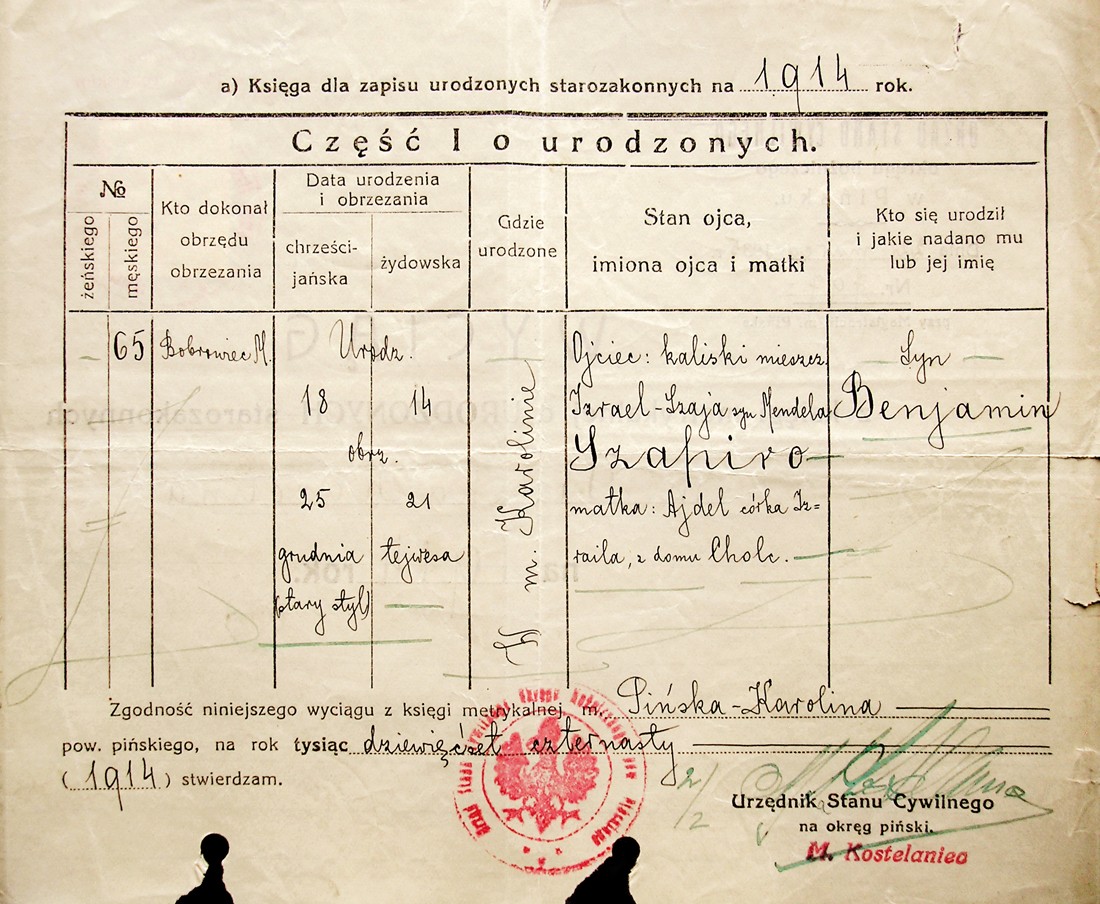 a) Księga dla zapisu urodzonych starozakonnych na 1914 rok.
Część I o urodzonych.
№
żeńskiego
męskiego
Kto dokonał
obrzędu
obrzezania
Data urodzenia
i obrzezania
chrześci-
jańska
żydowska
Gdzie
urodzone
Stan ojca,
imiona ojca i matki
Kto się urodził
i jakie nadano mu
lub jej imię
–
65
Bobrowiec M.
Urodz.
18
14
obrz.
25
21
grudnia
tejwesa
(stary styl)
W m. Karolinie
Ojciec: kaliski mieszcz.
Izrael-Szaja syn Mendela
Szapiro
matka: Ajdel córka Iz=
raila, z domu Cholc.
Syn
Benjamin
Zgodność niniejszego wyciągu z księgi metrykalnej m. Pińska-Karolina
pow. pińskiego, na rok tysiąc dziewięćset czternasty
(1914) stwierdzam.
Urzędnik Stanu Cywilnego
na okręg piński.
M. Kostelaniec